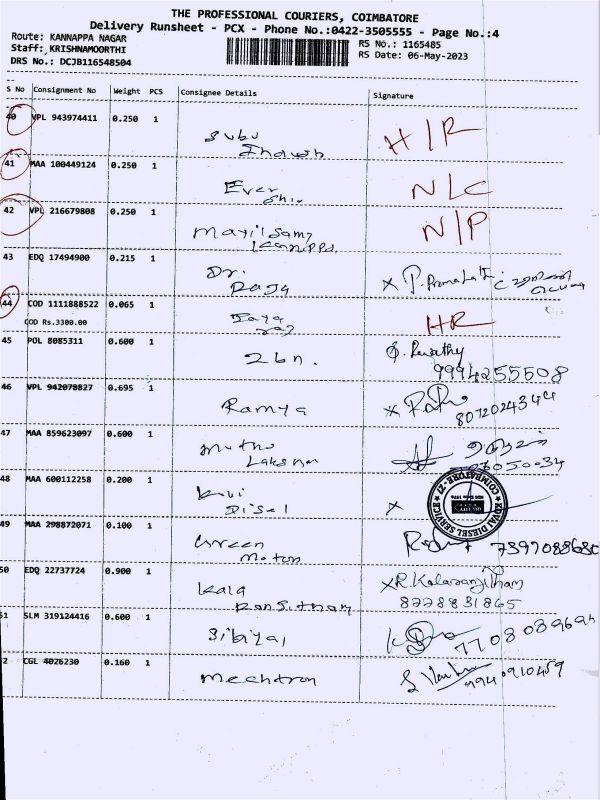 THE PROFESSIONAL COURIERS, COIMBATORE
Delivery Runsheet - PCX - Phone No.:0422-3505555 - Page No.:4
Route: KANNAPPA NAGAR
Staff: KRISHNAMOORTHI
DRS No.: DCJB116548504
RS No.: 1165485
RS Date: 06-May-2023
S No Consignment No Weight PCS Consignee Details Signature
40 VPL 943974411 0.250 1 H/R
41 MAA 100449124 0.250 1 Ever N/C
42 VPL 216679808 0.250 1 Mayilsamy N/P
43 EDQ 17494900 0.215 1 Dr. Raja
44 COD 1111888522 0.065 1 Jaya raj HR
COD Rs.3300.00
45 POL 8085311 0.600 1 Revathy
9994255508
46 VPL 942078827 0.695 1 Ramya
8072024344
47 MAA 859623097 0.600 1 Muthu
48 MAA 600112258 0.200 1 Kovi Disel
KOVAI DIESEL SERVICE
COIMBATORE-27
49 MAA 298872071 0.100 1 Green Moton
50 EDQ 22737724 0.900 1 Kala Ransitham R. Kalaranjitham
8228831865
51 SLM 319124416 0.600 1
2 CGL 4026230 0.160 1 Mechtron 9940910459